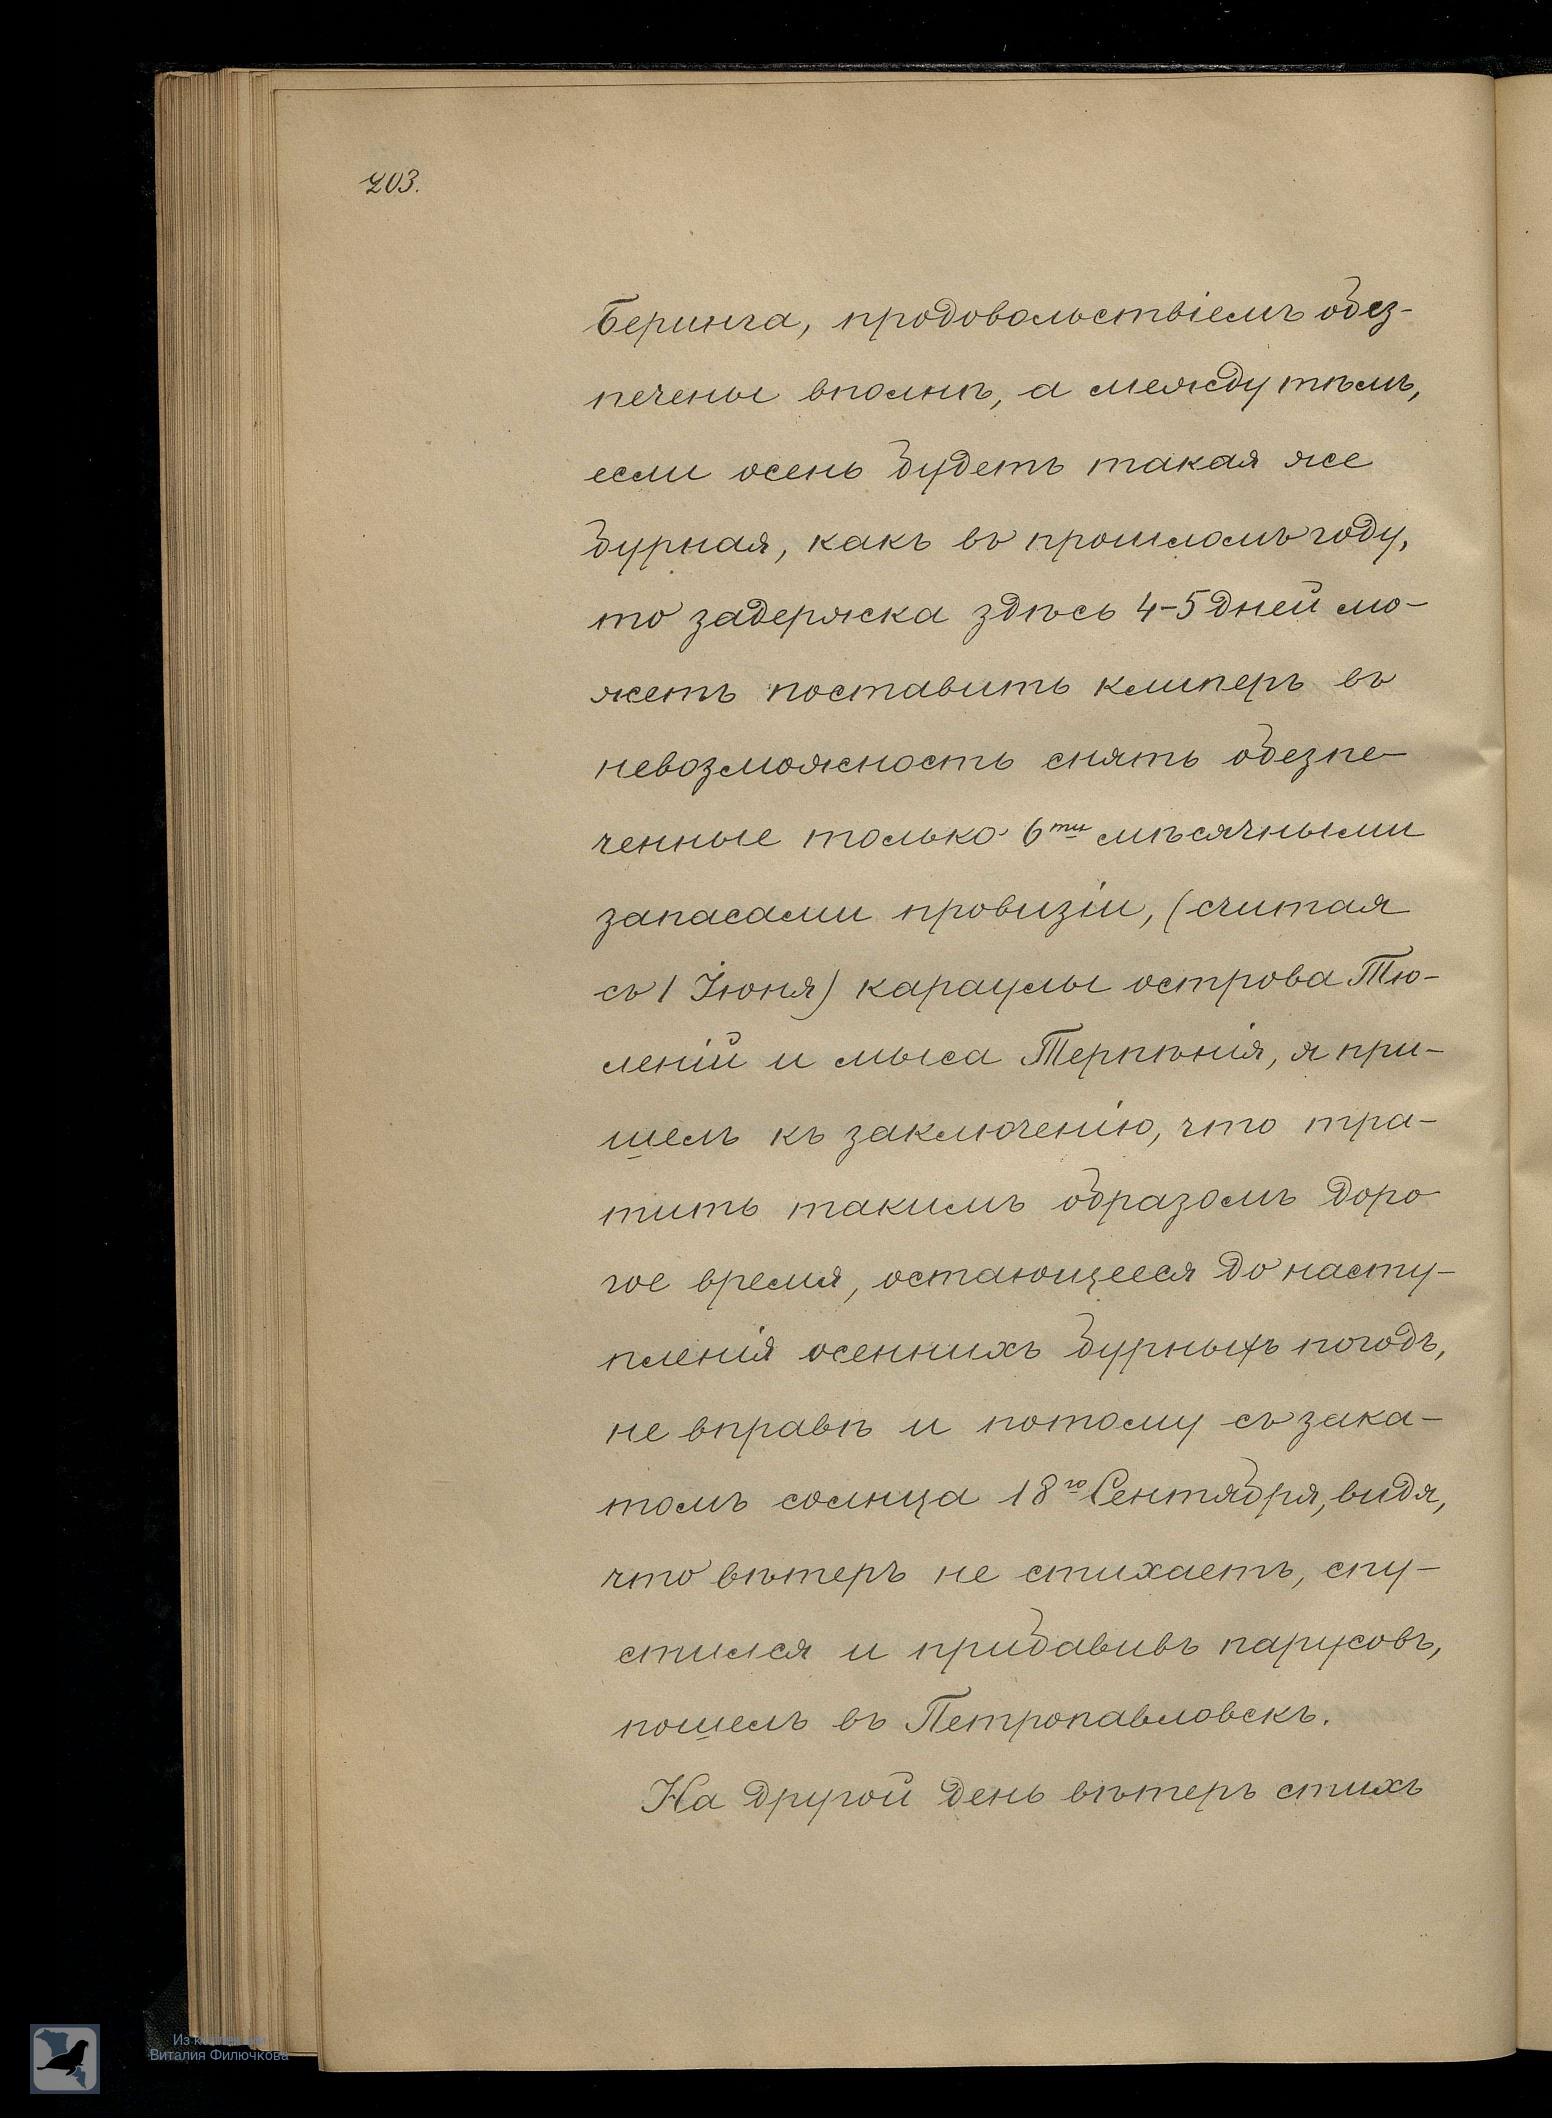 203.
Беринга, продовольствіемъ обез-
печены вполнѣ, а между тѣмъ,
если осень будетъ такая же
бурная, какъ въ прошломъ году,
то задержка здѣсь 4-5 дней мо-
жетъ поставить клиперъ въ
невозможность снять обезпе-
ченные только 6ти мѣсячными
запасами провизіи, (считая
съ 1 Іюня) караулы острова Тю-
леній и мыса Терпѣнія, я при-
шелъ къ заключенію, что тра-
тить такимъ образомъ доро-
гое время, остающееся до насту-
пленія осеннихъ бурныхъ погодъ,
не вправѣ и потому съ зака-
томъ солнца 18го Сентября, видя,
что вѣтеръ не стихаетъ, спу-
стился и прибавивъ парусовъ,
пошелъ въ Петропавловскъ.
На другой день вѣтеръ стихъ
Из коллекции
Виталия Филючкова